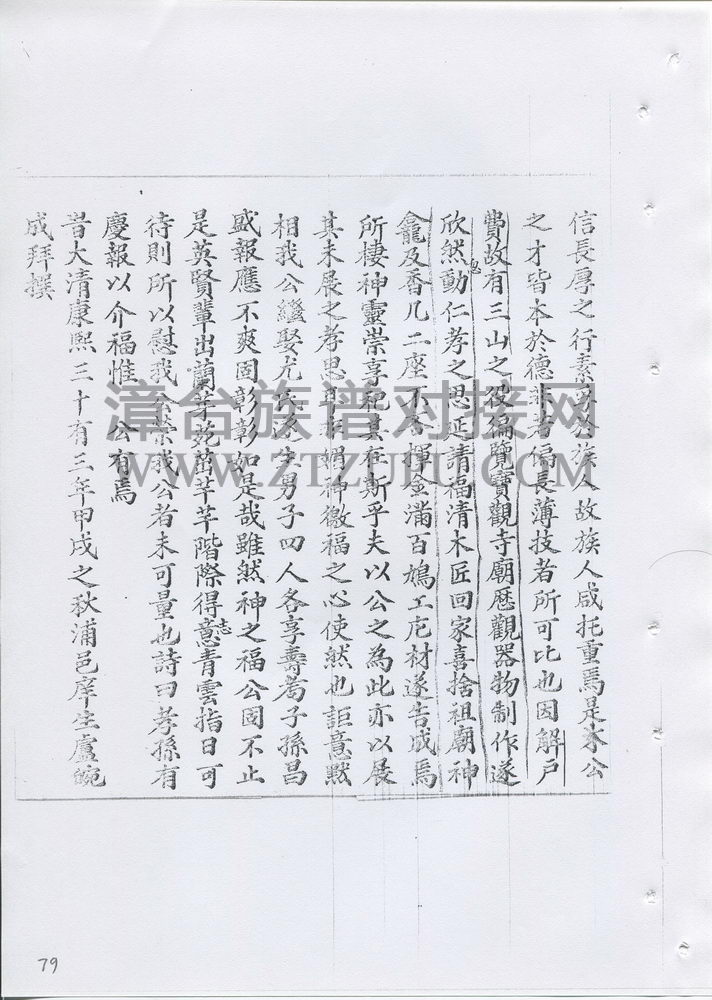 信長厚之行素族人故族人咸托重焉是公
之才皆本於德非若偏長薄技者所可比也因解戶
費故有三山之役徧覽寶觀寺廟歷觀器物制作遂
欣然動仁孝之思延請福清木匠回家喜捨祖廟神
龕及香几二座不吝揮金滿百鳩工庀材遂告成焉
所棲神靈崇享祀其在斯乎夫以公之為此亦以展
其未展之孝思媚神徼福之心使然也詎意默
相我公繼娶尤氏生男子四人各享壽子孫昌
盛報應不爽固彰彰如是哉雖然神之福公固不止
是英賢輩出蘭芽苑茁芊芊階際得意志青雲指日可
待則所以慰我公榮我公者未可量也詩曰孝孫有
慶報以介福惟 公有焉
昔大清康熙三十有三年甲戌之秋浦邑庠生盧婉
成拜撰
漳台族谱对接网
WWW.ZTZUPU.COM
79